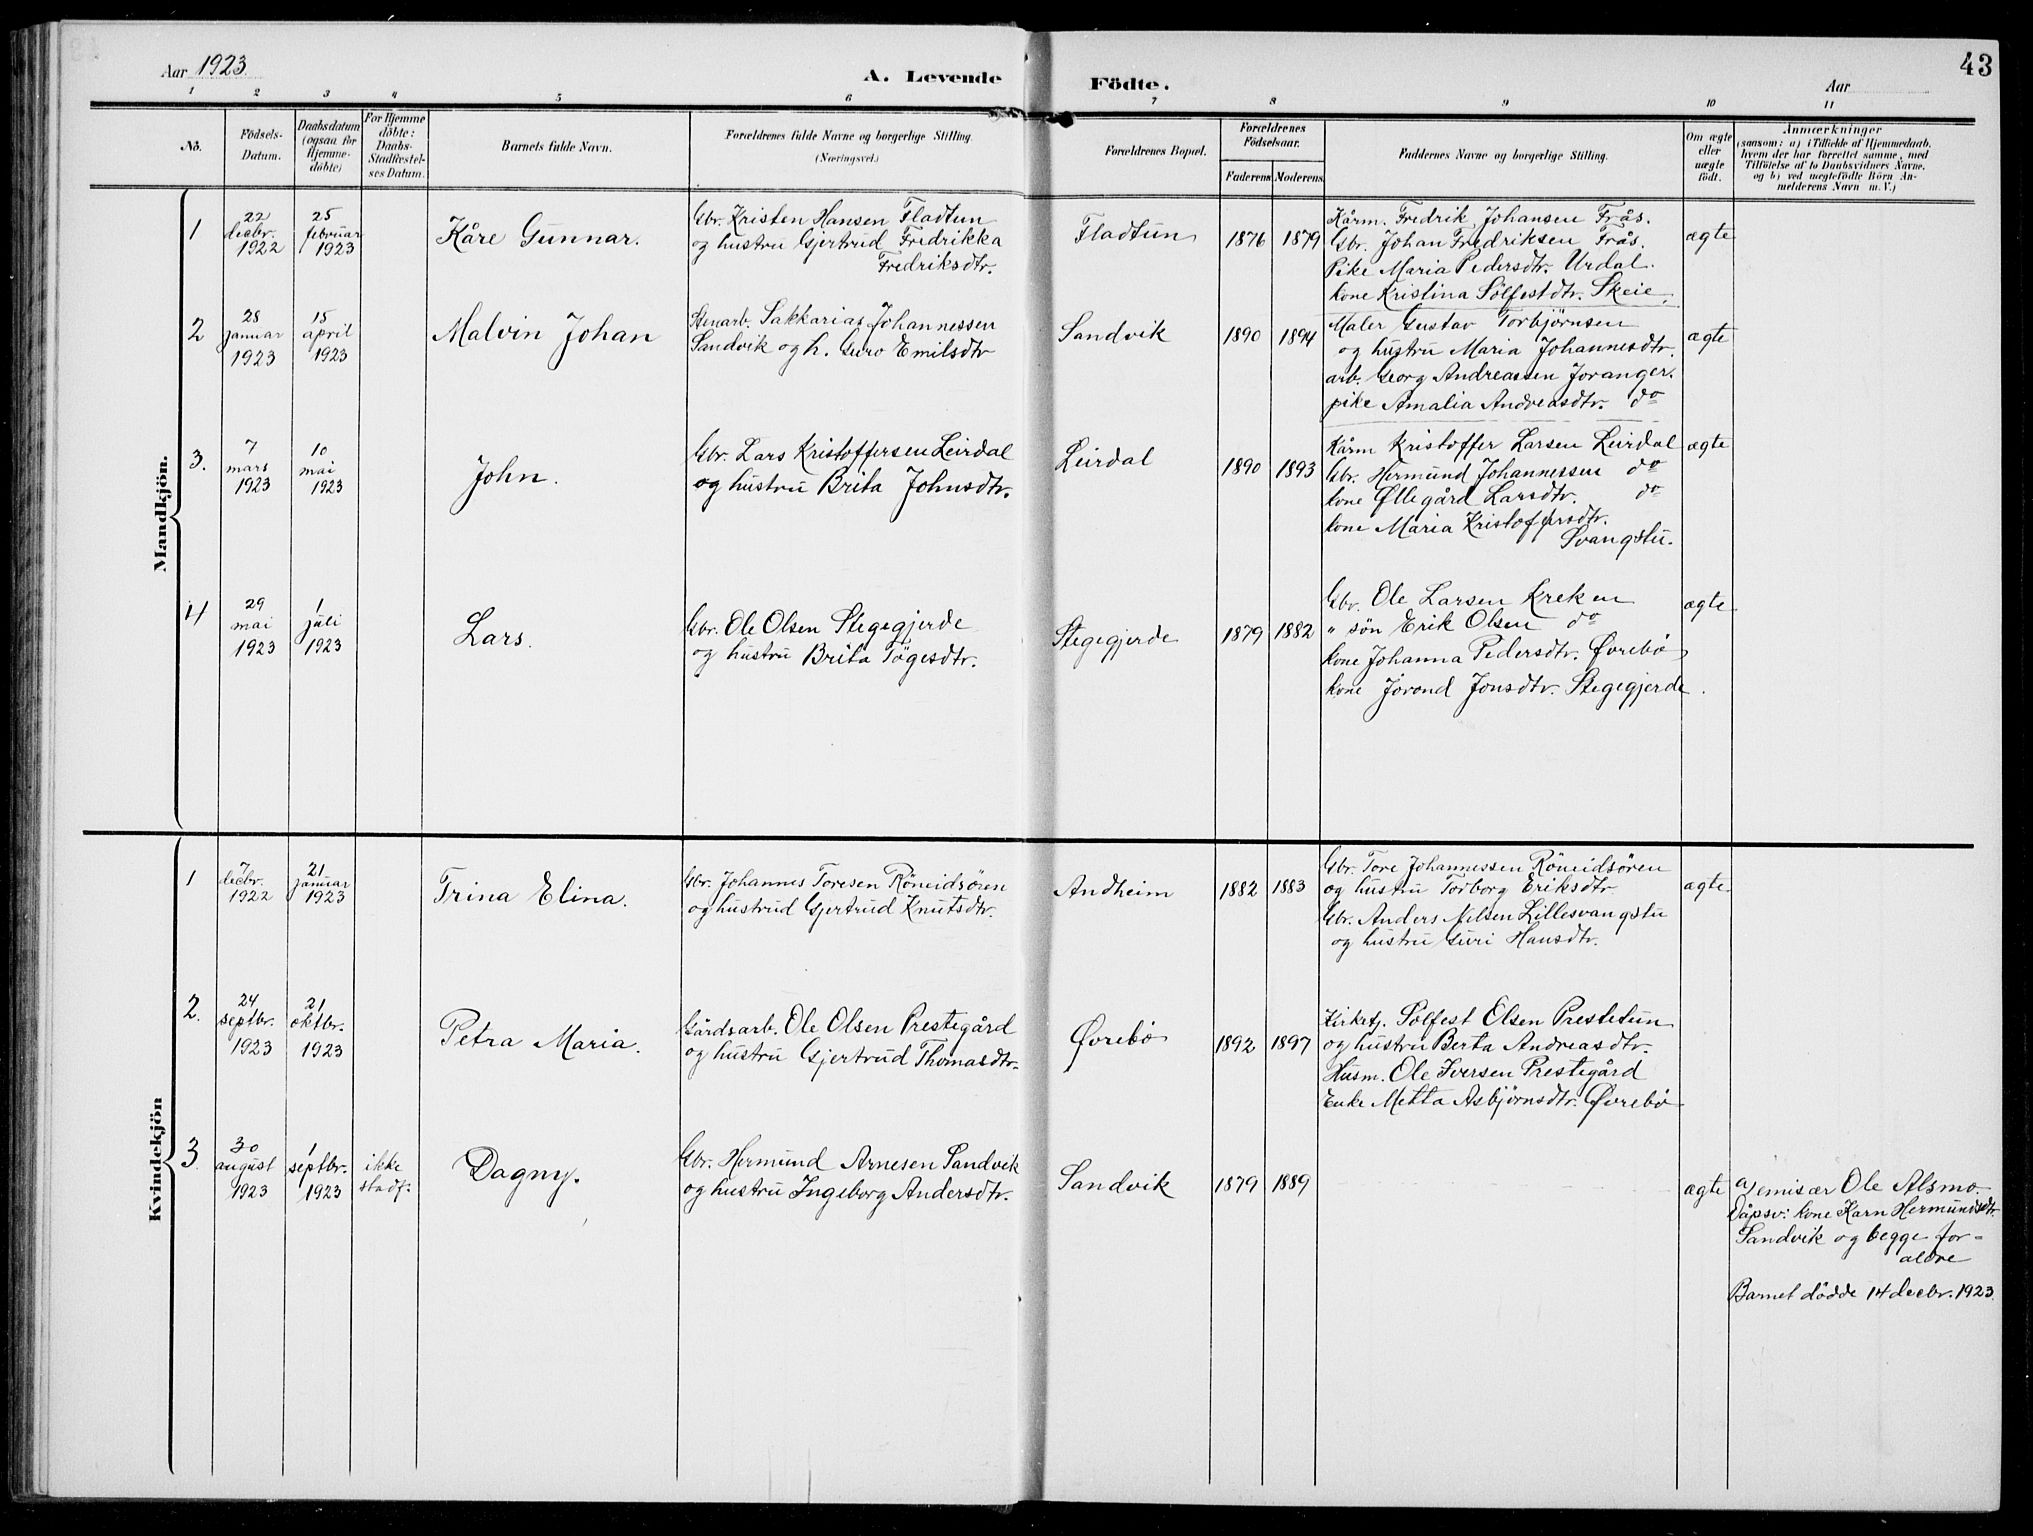 Aar 1923.
A. Levende Födte.
Aar
43
1 2 3 4 5 6 7 8 9 10 11
No.
Födsels-
Datum.
Daabsdatum
(ogsaa for
Hjemme-
döbte)
For Hjemme
döbte:
Daabs-
Stadfæstel-
ses Datum.
Barnets fulde Navn.
Forældrenes fulde Navne og borgerlige Stilling.
(Næringsvei.)
Forældrenes Bopæl.
Forældrenes
Födselsaar.
Faderens
Moderens
Faddernes Navne og borgerlige Stilling.
Om ægte
eller
uægte
födt.
Anmærkninger
(saasom: a) i Tilfælde af Hjemmedaab,
hvem der har forrettet samme, med
Tilföielse af to Daabsvidners Navne,
og b) ved uegtefödte Börn An-
melderens Navn m. V.)
Mandkjön.
1
22
decbr.
1922
25
februar
1923
Kåre Gunnar.
Gbr. Kristen Hansen Fladtun
og hustru Gjertrud Fredrikka
Fredriksdtr.
Fladtun
1876
1879
Kårm. Fredrik Johansen Frås.
Gbr. Johan Fredriksen Frås.
Pike Maria Pedersdtr. Urdal.
kone Kristina Sölfestdtr. Skeie.
ægte
2
28
januar
1923
15
april
1923
Malvin Johan
Stenarb. Sakkarias Johannessen
Sandvik og h. Guro Emilsdtr
Sandvik
1890
1894
Maler Gustav Torbjørnsen
og hustru Maria Johannesdtr.
arb. Georg Andreassen Joranger.
pike Amalia Andreasdtr. do
ægte
3.
7
mars
1923
10
mai
1923
John.
Gbr. Lars Kristoffersen Leirdal
og hustru Brita Johnsdtr.
Leirdal
1890
1893
Kårm Kristoffer Larsen Leirdal
Gbr. Hermund Johannessen do
kone Øllegård Larsdtr. do
kone Maria Kristoffersdtr.
Svangstu.
ægte
4
29
mai
1923
1
juli
1923
Lars.
Gbr. Ole Olsen Stegegjerde
og hustru Brita Tøgesdtr.
Stegegjerde
1879
1882
Gbr. Ole Larsen Kreken
" søn Erik Olsen do
kone Johanna Pedersdtr. Øvrebø
kone Jørond Jonsdtr. Stegegjerde.
ægte
Kvindekjön
1
7
decbr.
1922
21
januar
1923
Trina Elina.
Gbr. Johannes Toresen Röneidsören
og hustrud Gjertrud Knutsdtr.
Andheim
1882
1883
Gbr. Tore Johannessen Röneidsören
og hustru Torborg Eriksdtr
Gbr. Anders Nilsen Lillesvangstu
og hustru Guri Hansdtr.
ægte
2.
24
septbr.
1923
21
oktbr.
1923
Petra Maria.
Gårdsarb. Ole Olsen Prestegård
og hustru Gjertrud Thomasdtr.
Øvrebø
1892
1897
Kirketj. Solfest Olsen Prestetun
og hustru Berta Andreasdtr.
Husm. Ole Iversen Prestegård
Enke Metta Asbjørnsdtr. Øvrebø
3.
30
august
1923
1
septbr.
1923
ikke
stadf.
Dagny.
Gbr. Hermund Arnesen Sandvik
og hustru Ingeborg Andersdtr.
Sandvik
1879
1889
ægte
a) emisær Ole Alsmo.
Dåpsv: kone Karn Hermundsdtr.
Sandvik og begge for-
ældre
Barnet dödde 14 decbr. 1923.